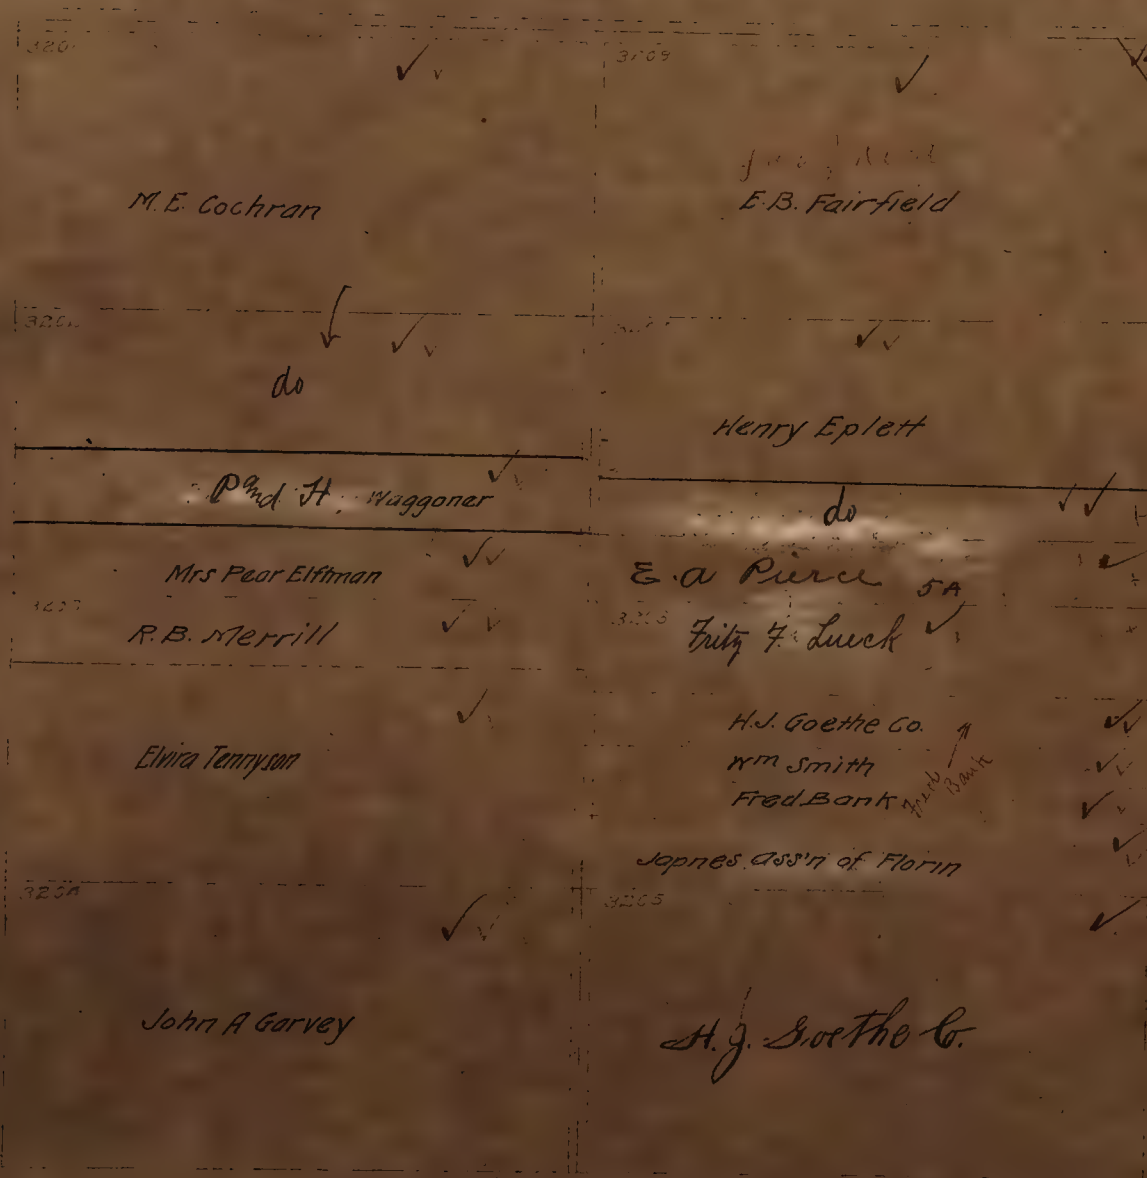 M.E. Cochran
do
P and H. Waggoner
Mrs Pear Elftman
R.B. Merrill
Elvira Tennyson
John A Garvey
E.B. Fairfield
Henry Eplett
do
E. a Pierce 5A
Fritz F. Lueck
H.J. Goethe Co.
Wm Smith
Fred Bank
Fred Bank
Japnes. Ass'n of Florin
3205
H. J. Goethe Co.